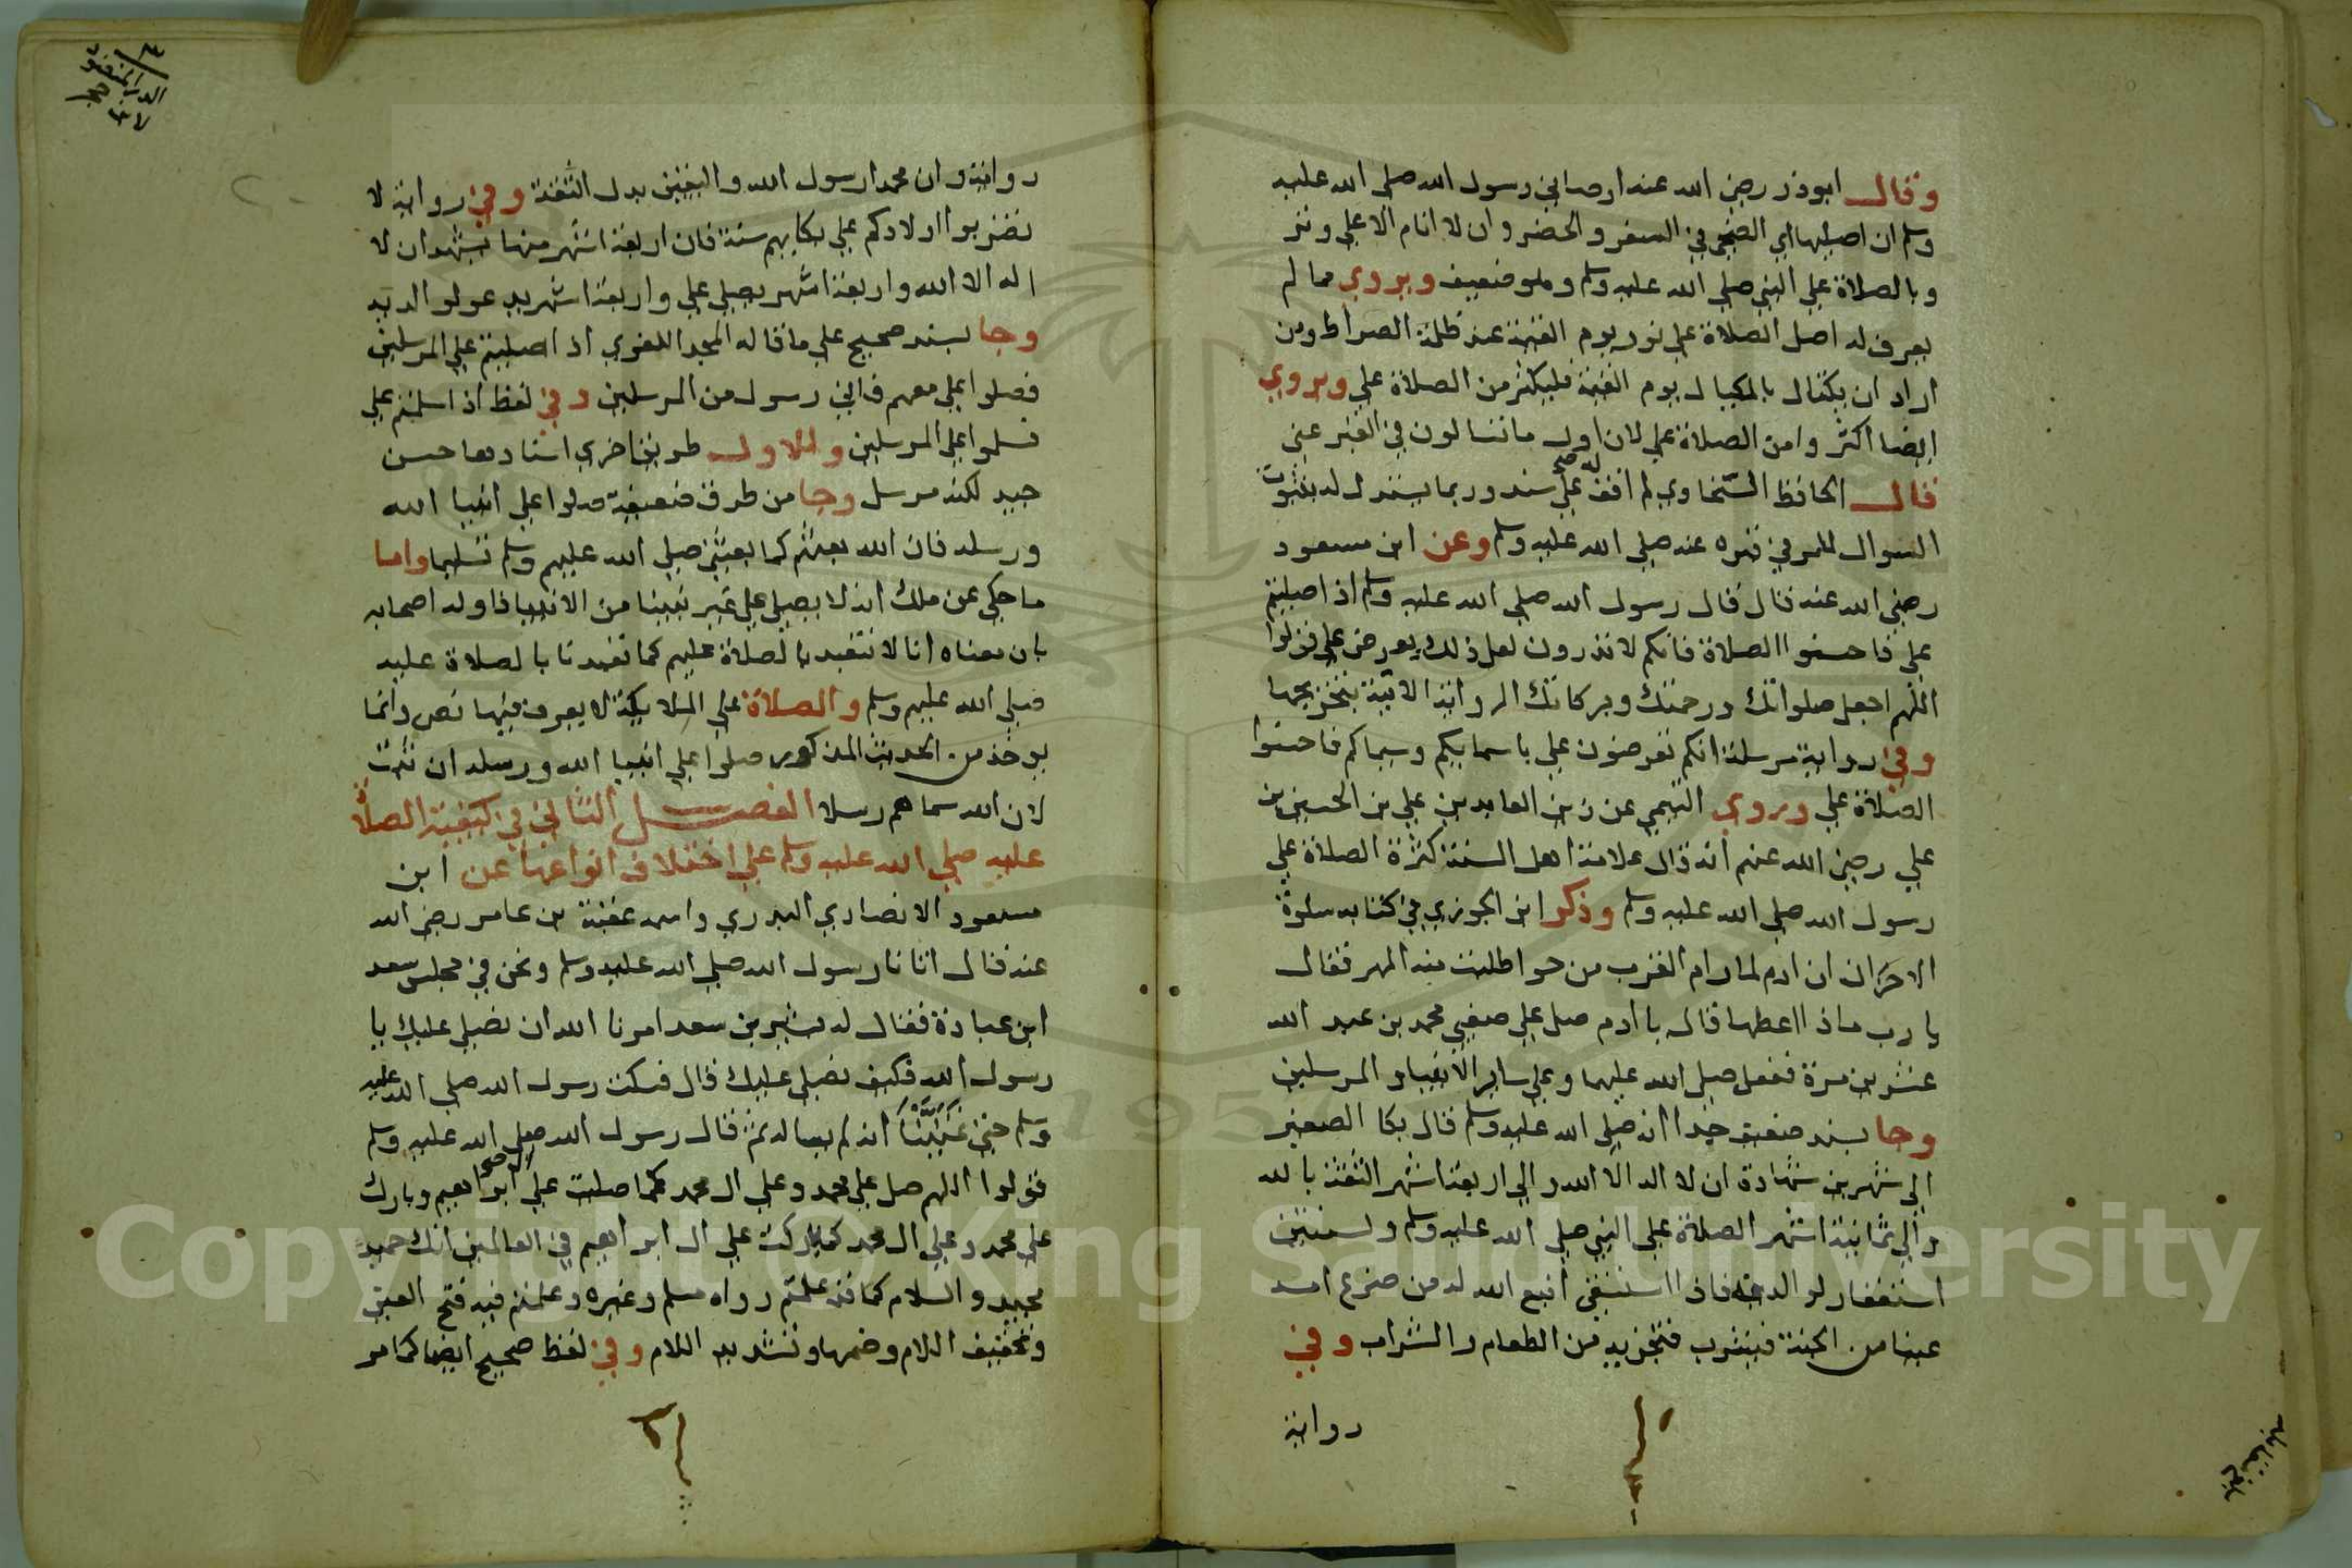 وقال ابوذر رضي الله عنه اوصاني رسول الله صلي الله عليه
وسلم ان اصليها اي الضحي في السفر والحضر وان لا انام الا علي وتر
وبالصلاة علي النبي صلي الله عليه وسلم وهو ضعيف ويروي مما لم
يعرف له اصل الصلاة علي نور يوم القيمة عند ظلمة الصراط ومن
اراد ان يكتال بالمكيال يوم القيمة فليكثر من الصلاة علي ويروي
ايضا اكثروا من الصلاة علي لان اول ما تسالون في القبر عني
قال الحافظ السخاوي لم اقف له علي سند وربما يستدل له بثبوت
السوال للمرء في قبره عنه صلي الله عليه وسلم وعن ابن مسعود
رضي الله عنه قال قال رسول الله صلي الله عليه وسلم اذا صليتم
علي فاحسنوا الصلاة فانكم لا تدرون لعل ذلك يعرض علي قولوا
اللهم اجعل صلواتك ورحمتك وبركاتك الرواية الاتية بتخريجها
وفي رواية مرسلة انكم تعرضون علي باسمايكم وسيماكم فاحسنوا
الصلاة علي وروي التيمي عن زين العابدين علي بن الحسين بن
علي رضي الله عنهم انه قال علامة اهل السنة كثرة الصلاة علي
رسول الله صلي الله عليه وسلم وذكر ابن الجوزي في كتابه سلوة
الاحزان ان ادم لما رام القرب من حوا طلبت منه المهر فقال
يا رب ماذا اعطها قال يا ادم صل علي صفيي محمد بن عبد الله
عشرين مرة ففعل صلي الله عليهما وعلي ساير الانبيا والمرسلين
وجا بسند ضعيف جدا انه صلي الله عليه وسلم قال بكا الصغير
الي شهرين شهادة ان لا اله الا الله والي اربعة اشهر الثقة بالله
والي ثمانية اشهر الصلاة علي النبي صلي الله عليه وسلم ولسنتين
استغفار لوالديه فاذا استسقي انبع الله له من ضرع امه
عينا من الجنة فيشرب فتجزيه من الطعام والشراب وفي
رواية
رواية وان محمدا رسول الله واليقين بدل الثقة وفي رواية لا
تضربوا اولادكم علي بكايهم سنة فان اربعة اشهر منها يشهد ان لا
اله الا الله واربعة اشهر يصلي علي واربعة اشهر يدعو لوالديه
وجا بسند صحيح علي ما قاله المجد اللغوي اذا صليتم علي المرسلين
فصلوا علي معهم فاني رسول من المرسلين وفي لفظ اذا سلمتم علي
فسلموا علي المرسلين وللاول طريق اخري اسنادها حسن
جيد لكنه مرسل وجا من طرق ضعيفة صلوا علي انبيا الله
ورسله فان الله بعثهم كما بعثني صلي الله عليهم وسلم تسليما واما
ما حكي عن ملك انه لا يصلي علي غير نبينا من الانبيا فاوله اصحابه
بان معناه انا لا نتعبد بالصلاة عليهم كما تعبدنا بالصلاة عليه
صلي الله عليهم وسلم والصلاة علي الملايكة لا يعرف فيها نص وانما
يوخذ من الحديث المذكور صلوا علي انبيا الله ورسله ان ثبت
لان الله سماهم رسلا الفصل الثاني في كيفية الصلاة
عليه صلي الله عليه وسلم علي اختلاف انواعها عن ابن
مسعود الانصاري البدري واسمه عقبة بن عامر رضي الله
عنه قال اتانا رسول الله صلي الله عليه وسلم ونحن في مجلس سعد
ابن عبادة فقال له بشير بن سعد امرنا الله ان نصلي عليك يا
رسول الله فكيف نصلي عليك قال فسكت رسول الله صلي الله عليه
وسلم حتي تمنينا انه لم يساله ثم قال رسول الله صلي الله عليه وسلم
قولوا اللهم صل علي محمد وعلي ال محمد كما صليت علي ال ابراهيم وبارك
علي محمد وعلي ال محمد كما باركت علي ال ابراهيم في العالمين انك حميد
مجيد والسلام كما قد علمتم رواه مسلم وغيره وعلمتم فيه فتح العين
وتخفيف اللام وضمها وتشديد اللام وفي لفظ صحيح ايضا كما مر
Copyright © King Saud University
1957